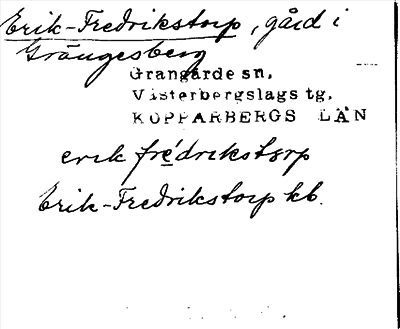 Erik-Fredrikstorp, gård i
Grängesberg
Grangärde sn.
Västerbergslags tg.
KOPPARBERGS LÄN
erik fre´drikstɷrp
Erik-Fredrikstorp kb.